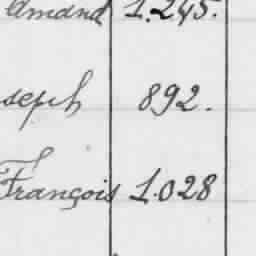 Amand 1.245.
seph 892.
François 1.028